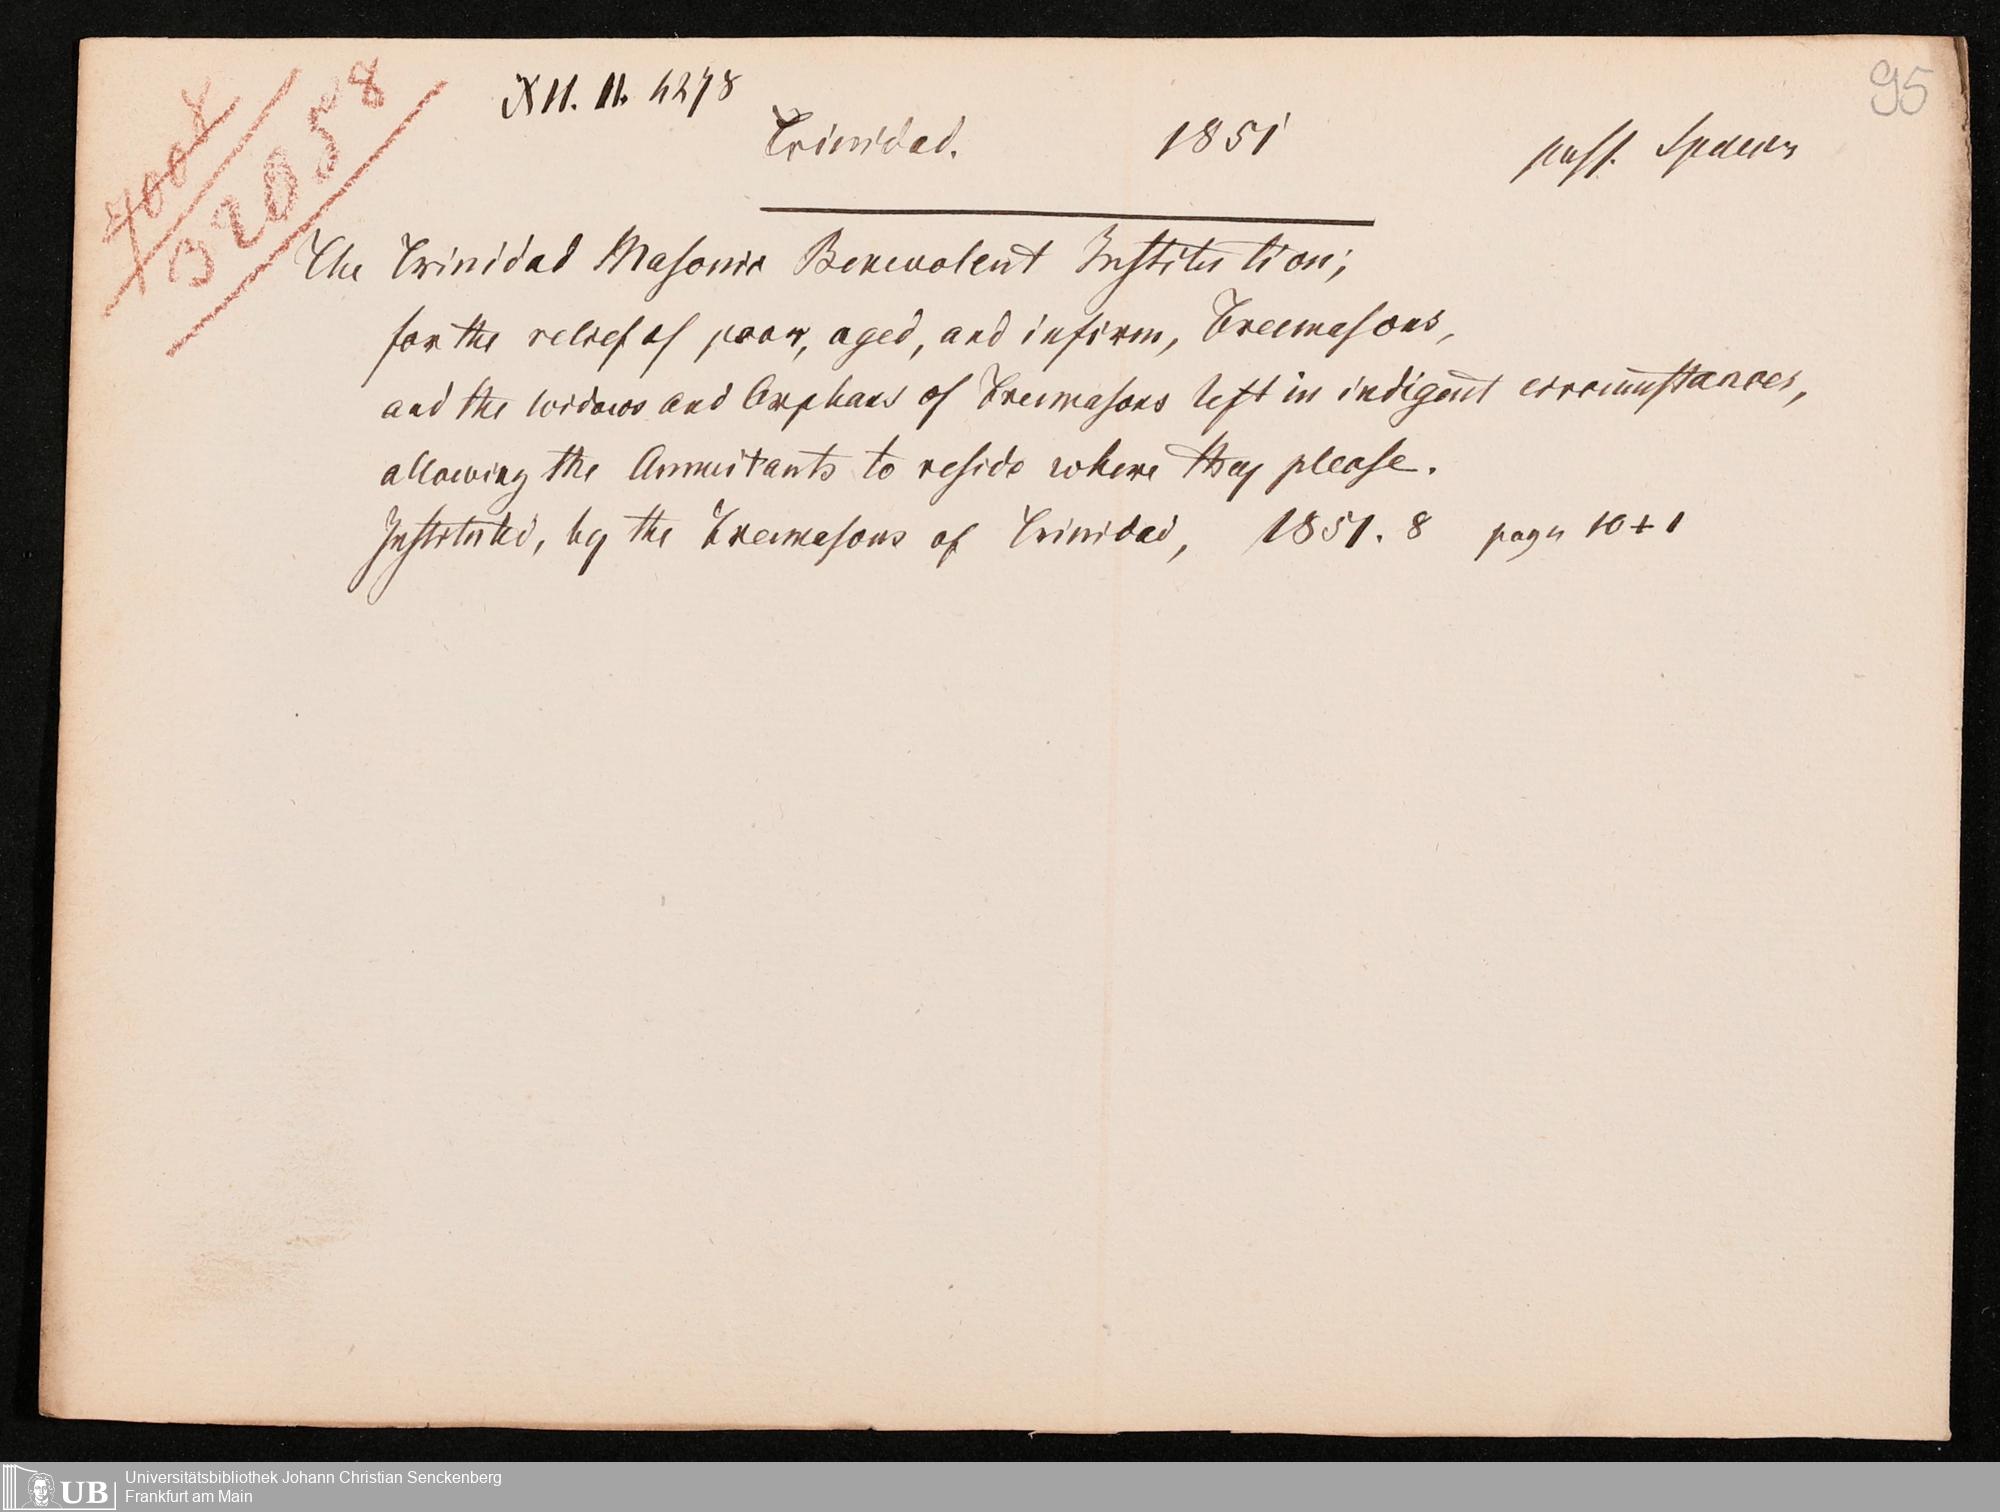 95
32058
XII. II. 4278
Trinidad. 1851
The Trinidad Masonic Benevolent Institution;
for the relief of poor, aged, and infirm, Freemasons,
and the widows and Orphans of Freemasons left in indigent circumstances,
allowing the Annuitants to reside where they please.
Instituted, by the Freemasons of Trinidad, 1851. 8 pagn 10+1
UB
Universitätsbibliothek Johann Christian Senckenberg
Frankfurt am Main